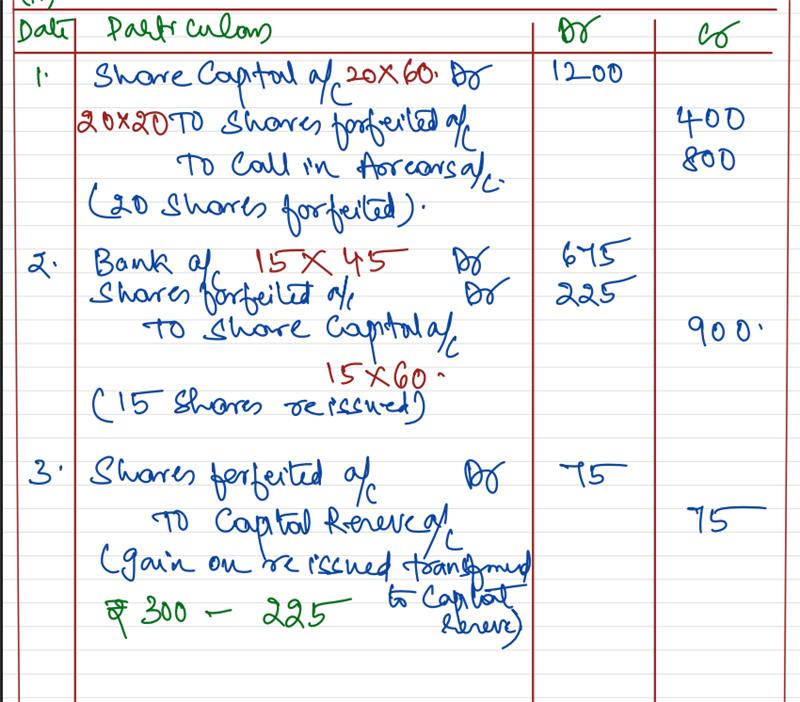 Date Particulars Dr Cr
1. Share Capital a/c 20×60. Dr 1200
20×20 To Shares forfeited a/c 400
To Call in Arrears a/c. 800
(20 Shares forfeited).
2. Bank a/c 15×45 Dr 675
Shares forfeited a/c Dr 225
To Share Capital a/c 900.
15×60.
(15 Shares reissued)
3. Shares forfeited a/c Dr 75
To Capital Rereve a/c 75
(gain on reissued transferred
to Capital
₹ 300 – 225
Rereve)